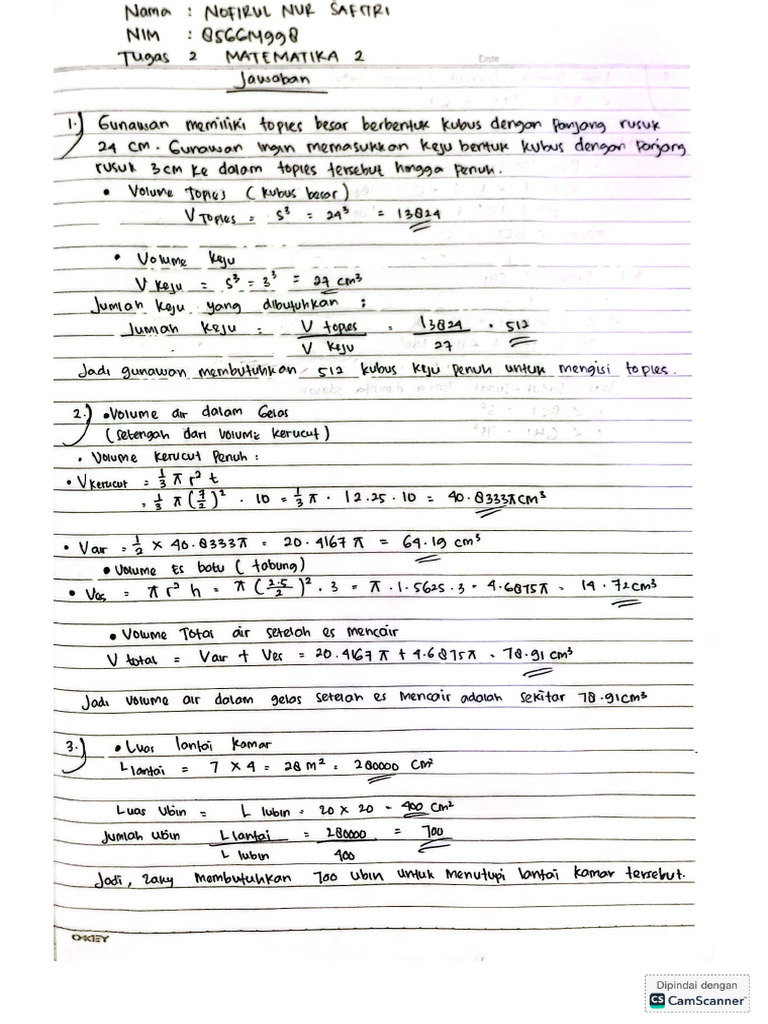 Nama : NOFIRUL NUR SAFITRI
NIM : 856614998
Tugas 2 MATEMATIKA 2
Date
Jawaban
1.) Gunawan memiliki toples besar berbentuk kubus dengan panjang rusuk
24 cm. Gunawan ingin memasukkan keju bentuk kubus dengan panjang
rusuk 3 cm ke dalam toples tersebut hingga penuh.
• Volume Toples (kubus besar)
V Toples = S³ = 24³ = 13824
• Volume keju
V keju = S³ = 3³ = 27 cm³
Jumlah keju yang dibutuhkan :
Jumlah keju = V toples = 13824 = 512
V keju 27
Jadi gunawan membutuhkan 512 kubus keju penuh untuk mengisi toples.
2.) • Volume air dalam Gelas
(setengah dari volume kerucut)
• Volume kerucut Penuh :
• V kerucut = 1/3 π r² t
= 1/3 π (7/2)² · 10 = 1/3 π · 12.25 · 10 = 40.8333π cm³
• Vair = 1/2 × 40.8333π = 20.4167 π = 64.19 cm³
• Volume Es batu (tabung)
• Ves = π r² h = π (2.5/2)² · 3 = π · 1.5625 · 3 = 4.6875π = 14.72 cm³
• Volume Total air setelah es mencair
V total = Vair + Ves = 20.4167 π + 4.6875π = 78.91 cm³
Jadi volume air dalam gelas setelah es mencair adalah sekitar 78.91 cm³
3.) • Luas lantai kamar
L lantai = 7 × 4 = 28 m² = 280000 cm²
Luas Ubin = L Ubin = 20 × 20 = 400 cm²
Jumlah Ubin L lantai = 280000 = 700
L Ubin 400
Jadi, zaky membutuhkan 700 ubin untuk menutupi lantai kamar tersebut.
OKEY
Dipindai dengan
CS CamScanner